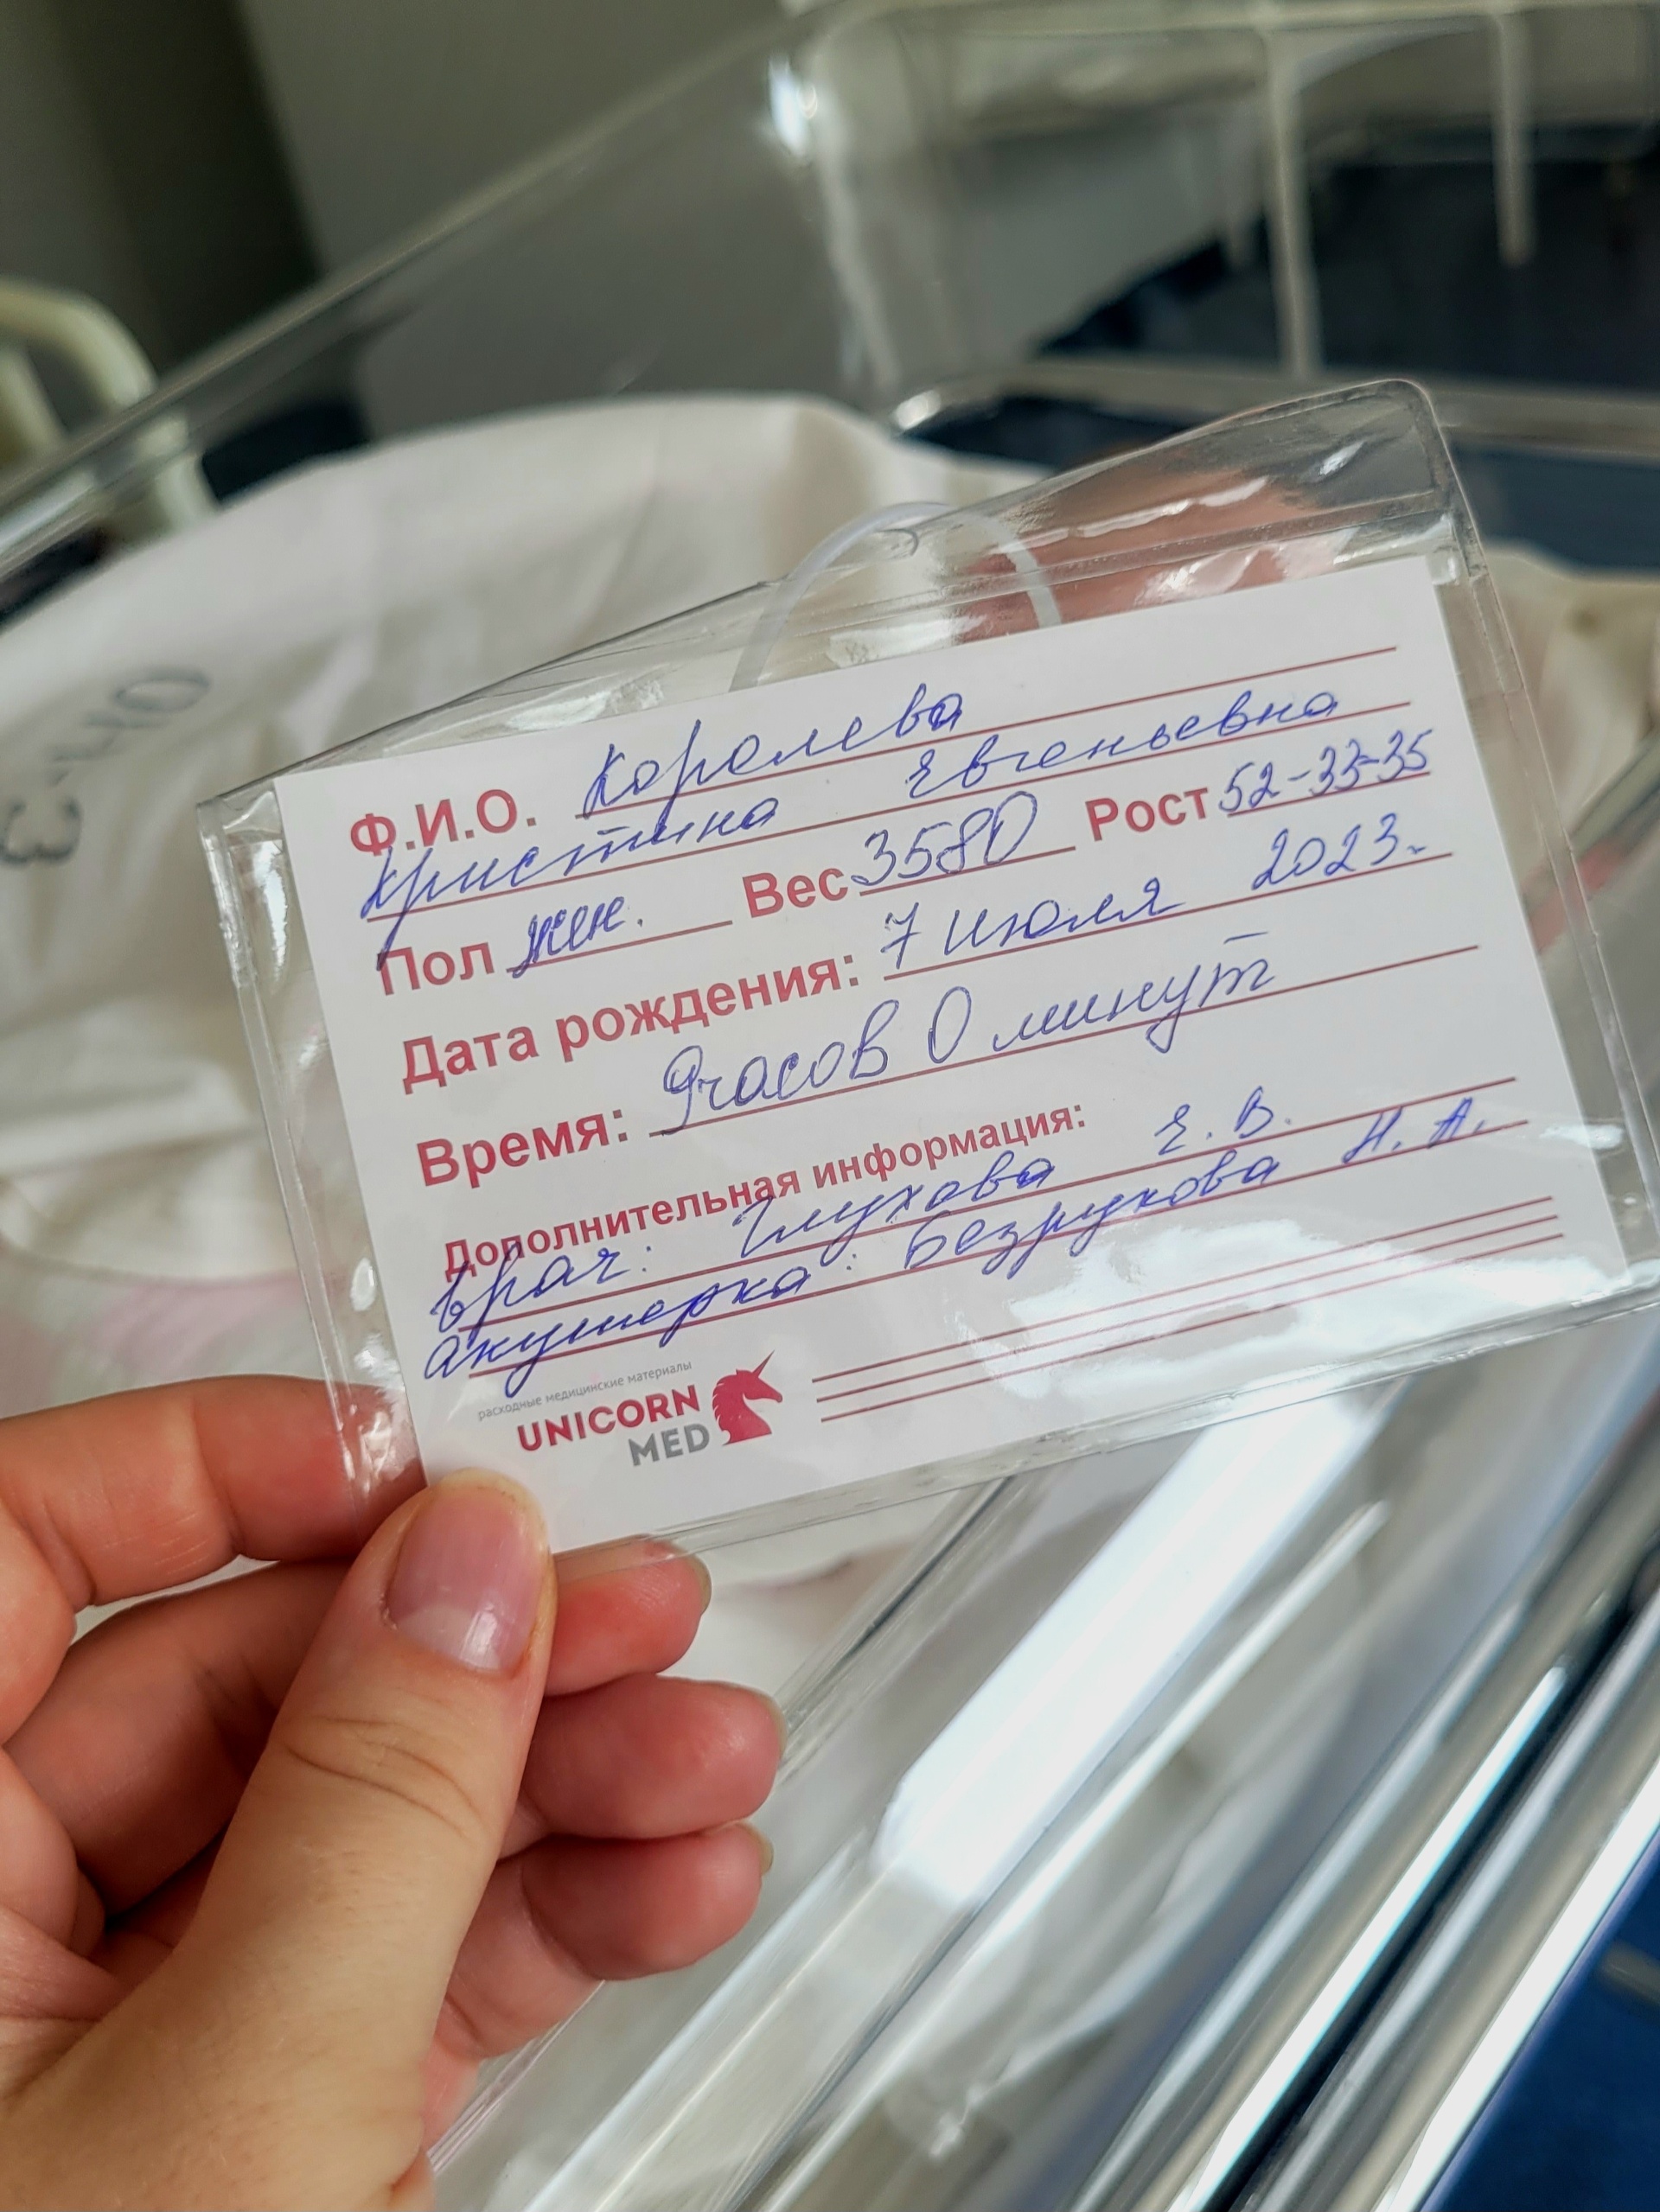 Ф.И.О. Королева
Кристина Евгеньевна
Пол жен. Вес 3580 Рост 52-33-35
Дата рождения: 7 июля 2023г.
Время: 9 часов 0 минут
Дополнительная информация:
врач: Глухова Е. В.
акушерка: Безрукова Н. А.
расходные медицинские материалы
UNICORN
MED